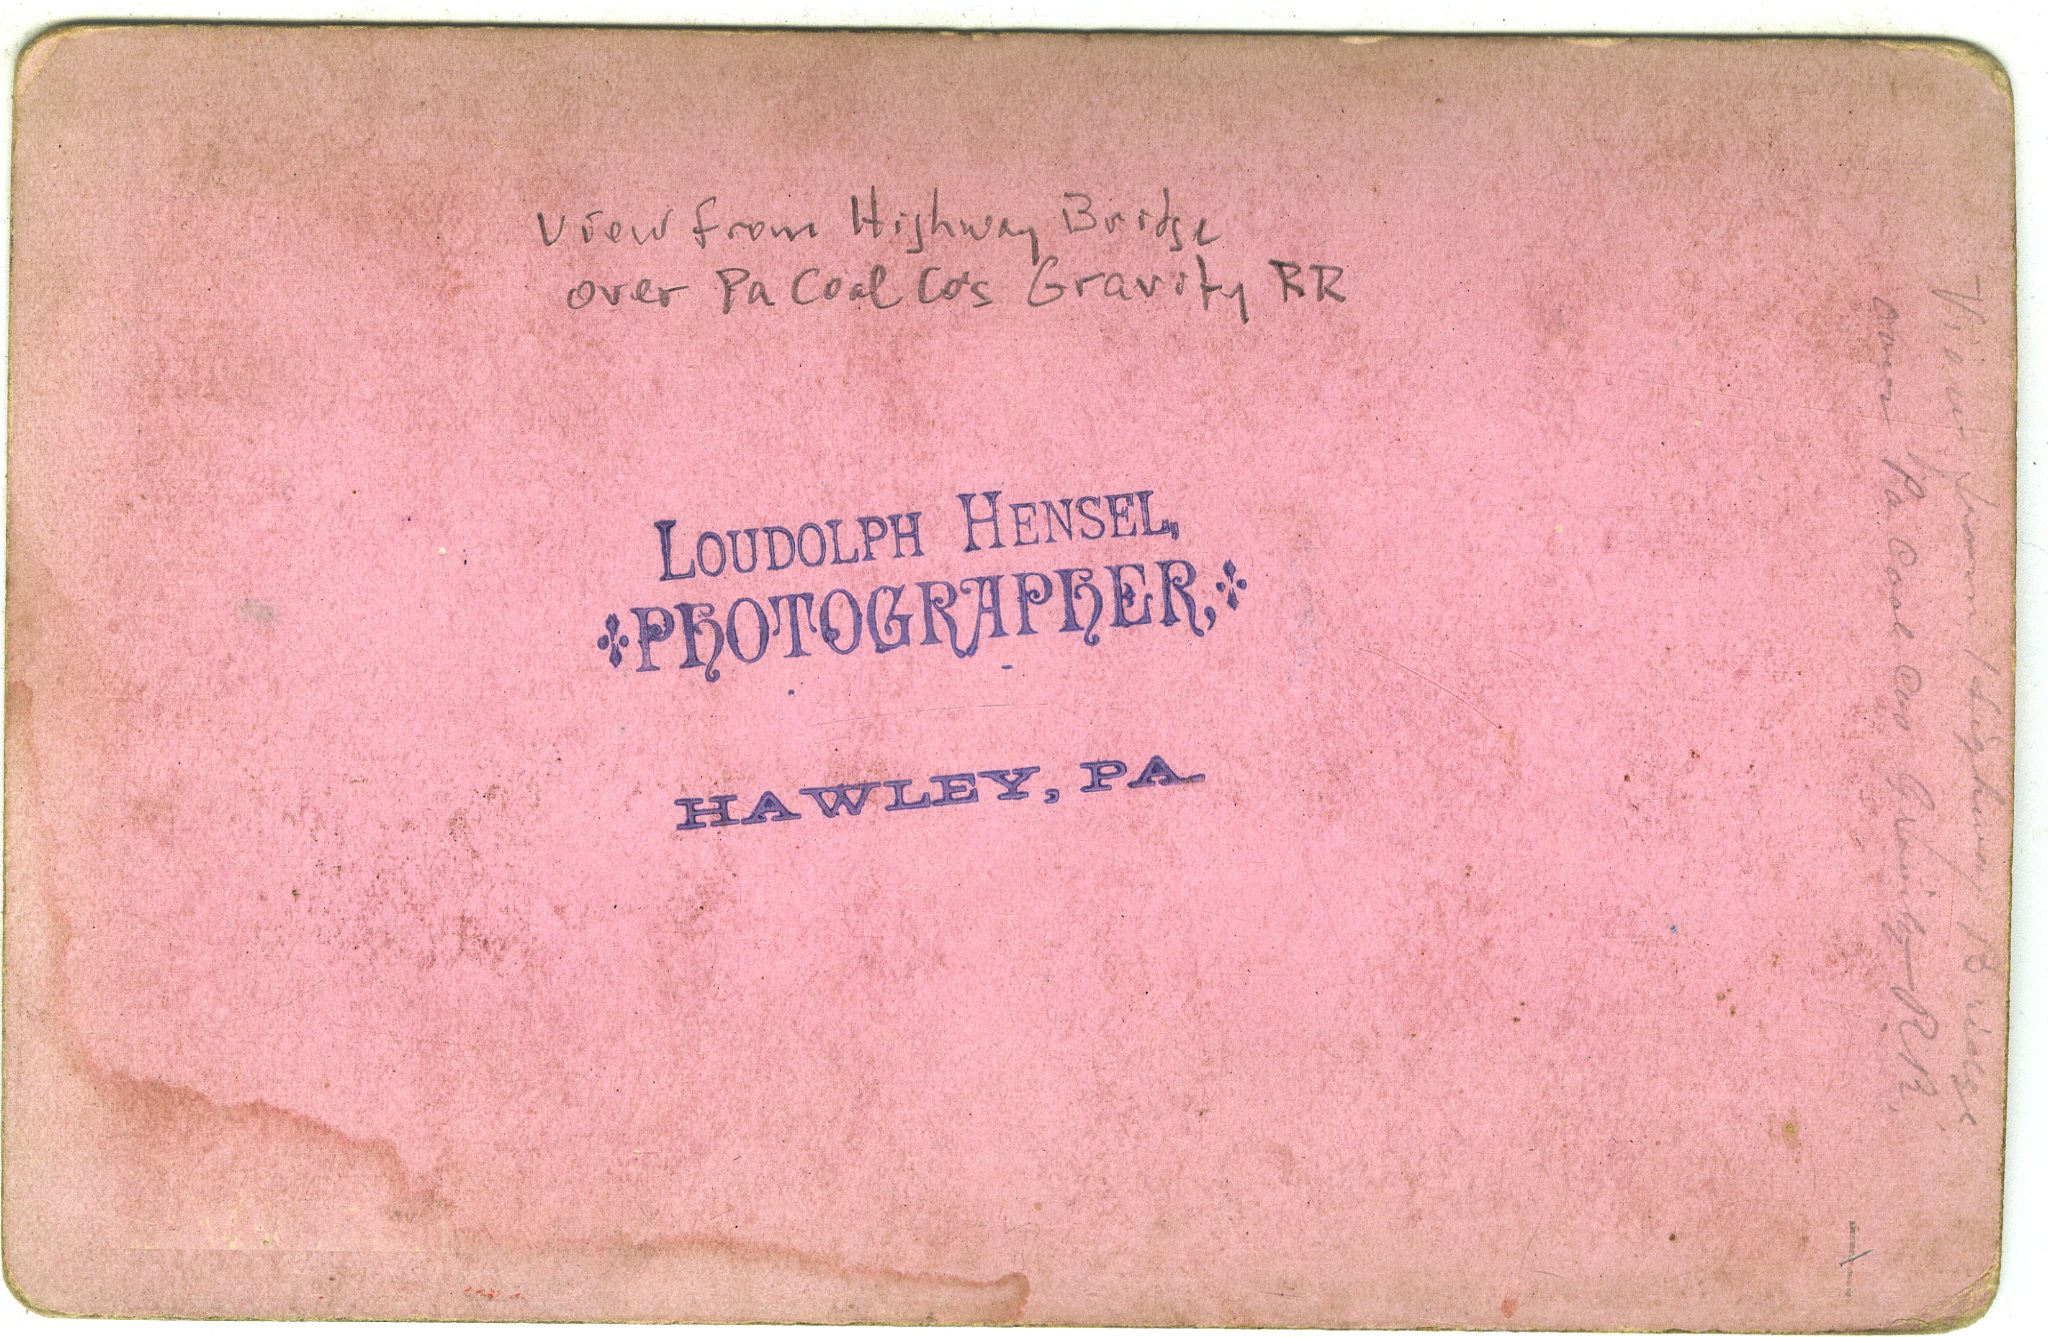 View from Highway Bridge
over Pa Coal Co's Gravity RR
LOUDOLPH HENSEL,
PHOTOGRAPHER,
HAWLEY, PA.
View from Highway Bridge
over Pa Coal Co's Gravity RR.